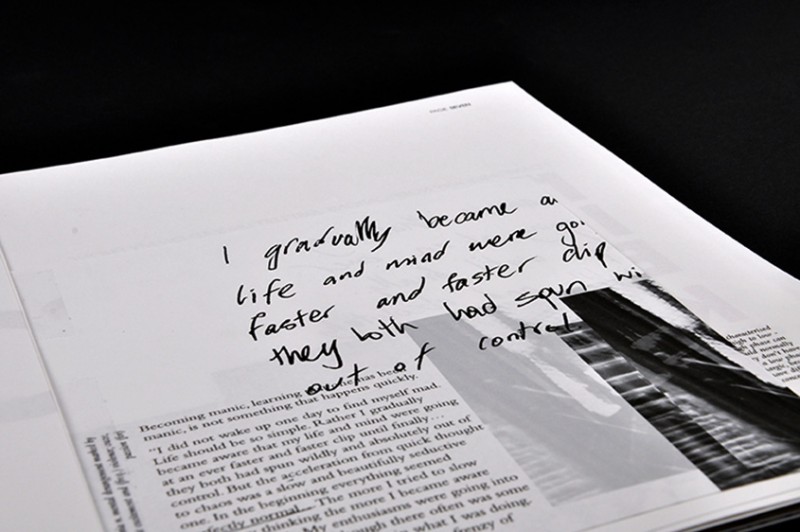 PAGE SEVEN
I gradually became a
life and mind were go
faster and faster clip
they both had spun wi
out of control
Becoming manic, learning he has be
manic, is not something that happens quickly.
"I did not wake up one day to find myself mad.
Life should be so simple. Rather I gradually
became aware that my life and mind were going
at an ever faster and faster clip until finally...
they both had spun wildly and absolutely out of
control. But the acceleration from quick thought
to chaos was a slow and beautifully seductive
one. In the beginning everything seemed
fectly normal. The more I tried to slow
thinking the more I became aware
My enthusiasms were going into
ough there often was some
what I was doing.
frenzy of
characterised
phase can
normally
don't have